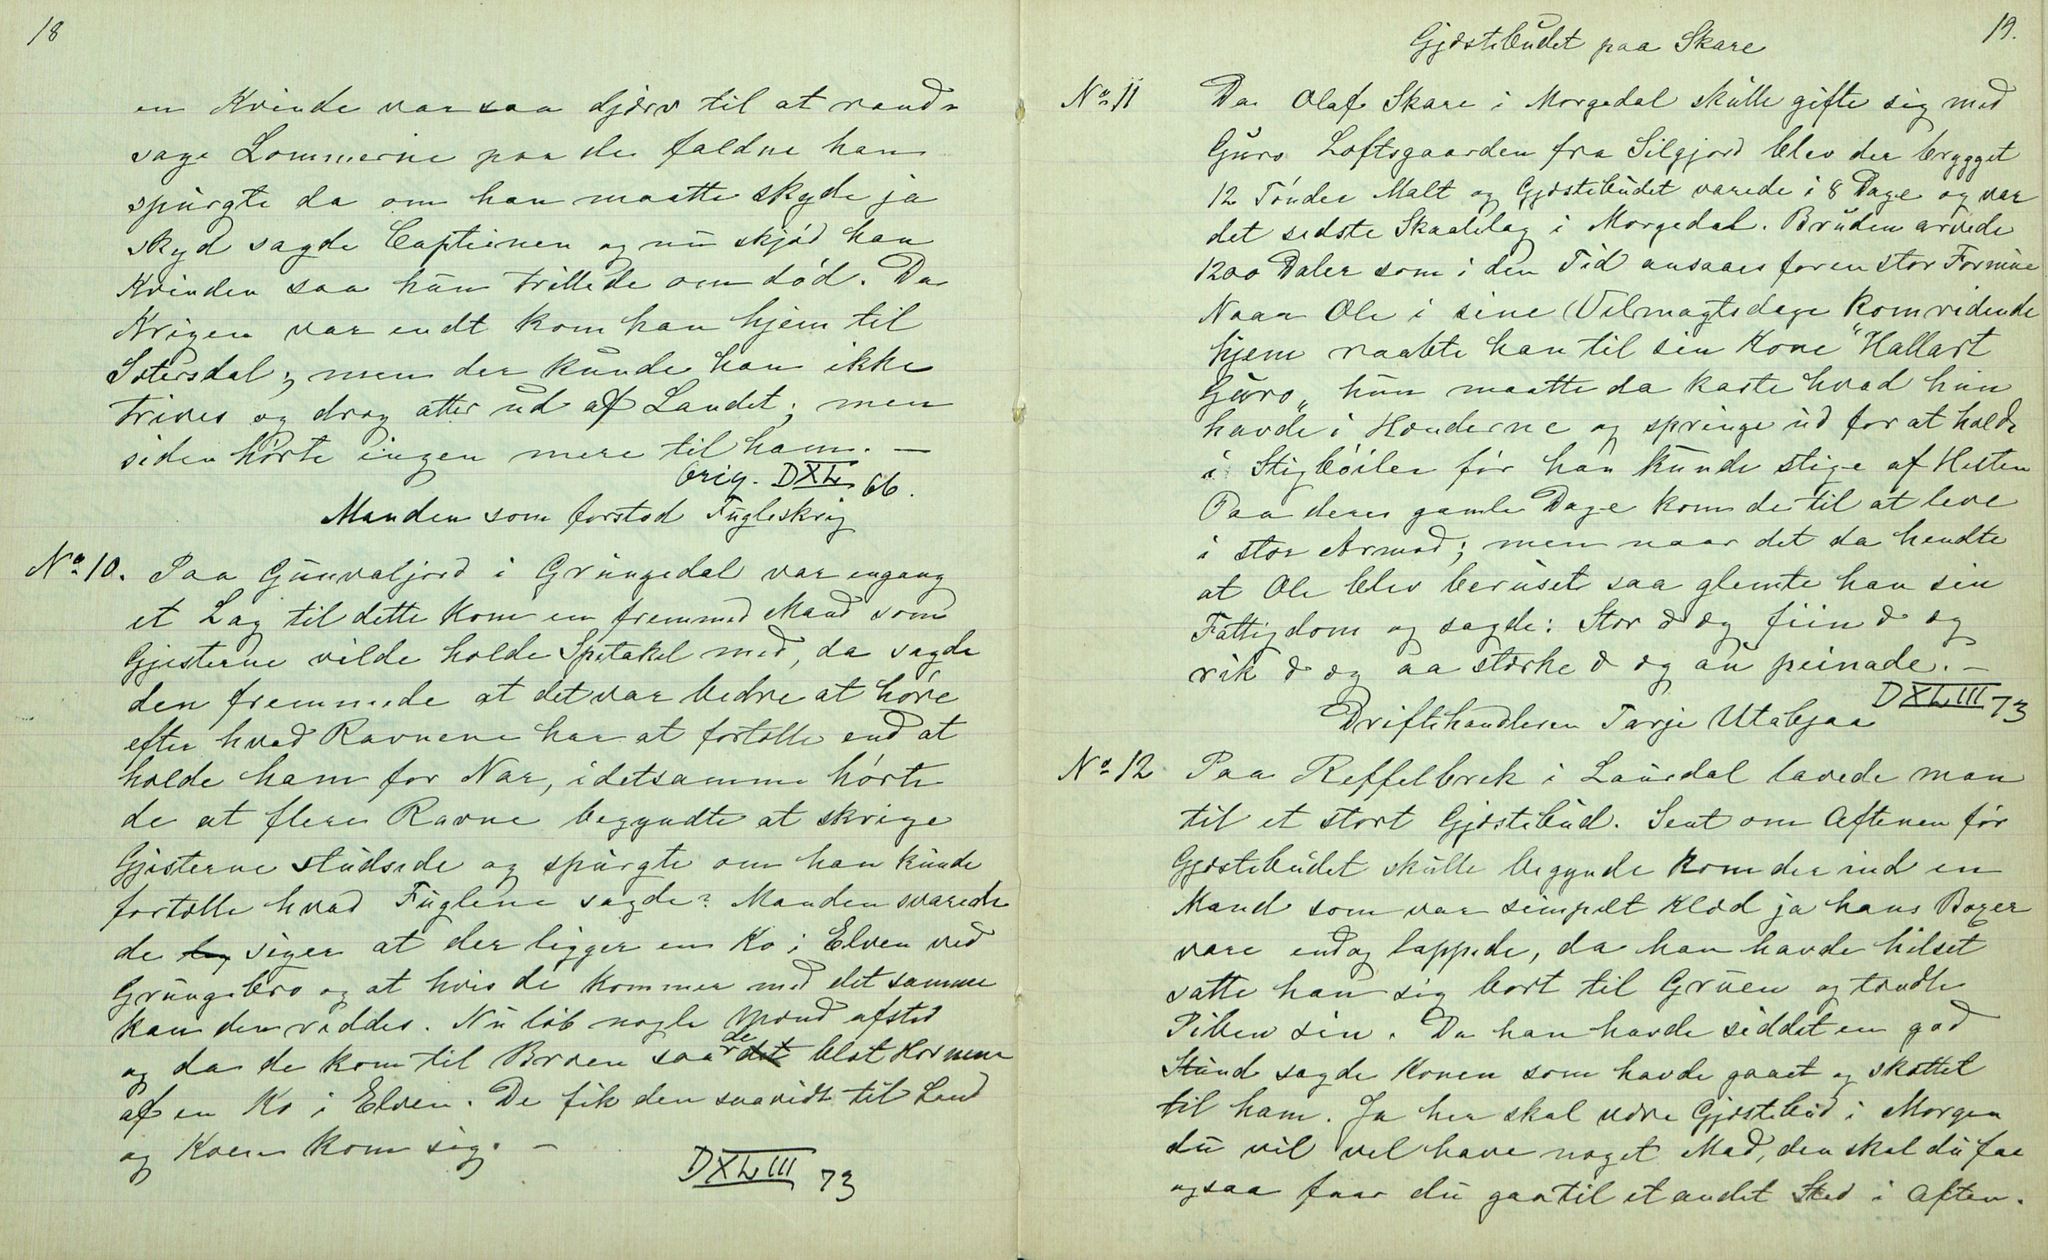 18
en Kvinde var saa djærv til at rand-
sage Lommerne paa de faldne han
spurgte da om han maatte skyde ja
skyd sagde Captienen og nu skjød han
Kvinden saa hun trillede om død. Da
Krigen var endt kom han hjem til
Sætersdal; men der kunde han ikke
trives og drog atter ud af Landet; men
siden hørte ingen mere til ham. —
Orig. DXL 66.
Manden som forstod Fugleskrig
No 10. Paa Gunvaljord i Grungedal var engang
et Lag til dette kom en fremmed Mand som
Gjesterne vilde holde Spetakel med, da sagde
den fremmede at det var bedre at høre
efter hvad Ravnene har at fortælle end at
holde ham for Nar, i detsamme hørte
de at flere Ravne begyndte at skrige
Gjesterne studsede og spurgte om han kunde
fortælle hvad Fuglene sagde? Manden svarede
de siger at der ligger en Ko i Elven ved
Grungebro og at hvis de kommer med det samme
kan den reddes. Nu løb nogle Mænd afsted
og da de kom til Broen saa de det blot Hornene
af en Ko i Elven. De fik den saavidt til Land
og Koen kom sig. —
DXLIII 73
19.
Gjæstebudet paa Skare
No 11 Da Olaf Skare i Morgedal skulle gifte sig med
Guro Loftsgaarden fra Silgjord blev der brygget
12 Tønder Malt og Gjæstebudet varede i 8 Dage og var
det sidste Skaalelag i Morgedal. Bruden arvede
1200 Daler som i den Tid ansaaes for en stor Formue
Naar Ole i sine Velmagtsdage kom ridende
hjem raabte han til sin Kone "Hallart
Guro„ hun maatte da kaste hvad hun
havde i Hænderne og springe ud for at holde
i Stigbøilen før han kunde stige af Hesten
Paa deres gamle Dage kom de til at leve
i stor Armod; men naar det da hendte
at Ole blev beruset saa glemte han sin
Fattigdom og sagde: Stor æ æg fiin æ æg
rik æ æg aa stærke æ æg au peinade. —
DXLIII 73
Driftehandleren Tarje Utabjaa
No 12 Paa Reffelbrek i Laurdal lavede man
til et stort Gjæstebud. Sent om Aftenen før
Gjæstebudet skulle begynde kom der ind en
Mand som var simpelt klæd ja hans Boxer
vare endog lappede, da han havde hilset
satte han sig bort til Gruen og tændte
Piben sin. Da han havde siddet en god
Stund sagde Konen som havde gaaet og skottet
til ham. Ja her skal være Gjæstebud i Morgen
du vil vel have noget Mad, den skal du faa
ogsaa faar du gaa til et andet Sted i Aften.